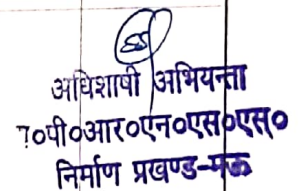 अधिशाषी अभियन्ता
०पी०आर०एन०एस०एस०
निर्माण प्रखण्ड-मऊ